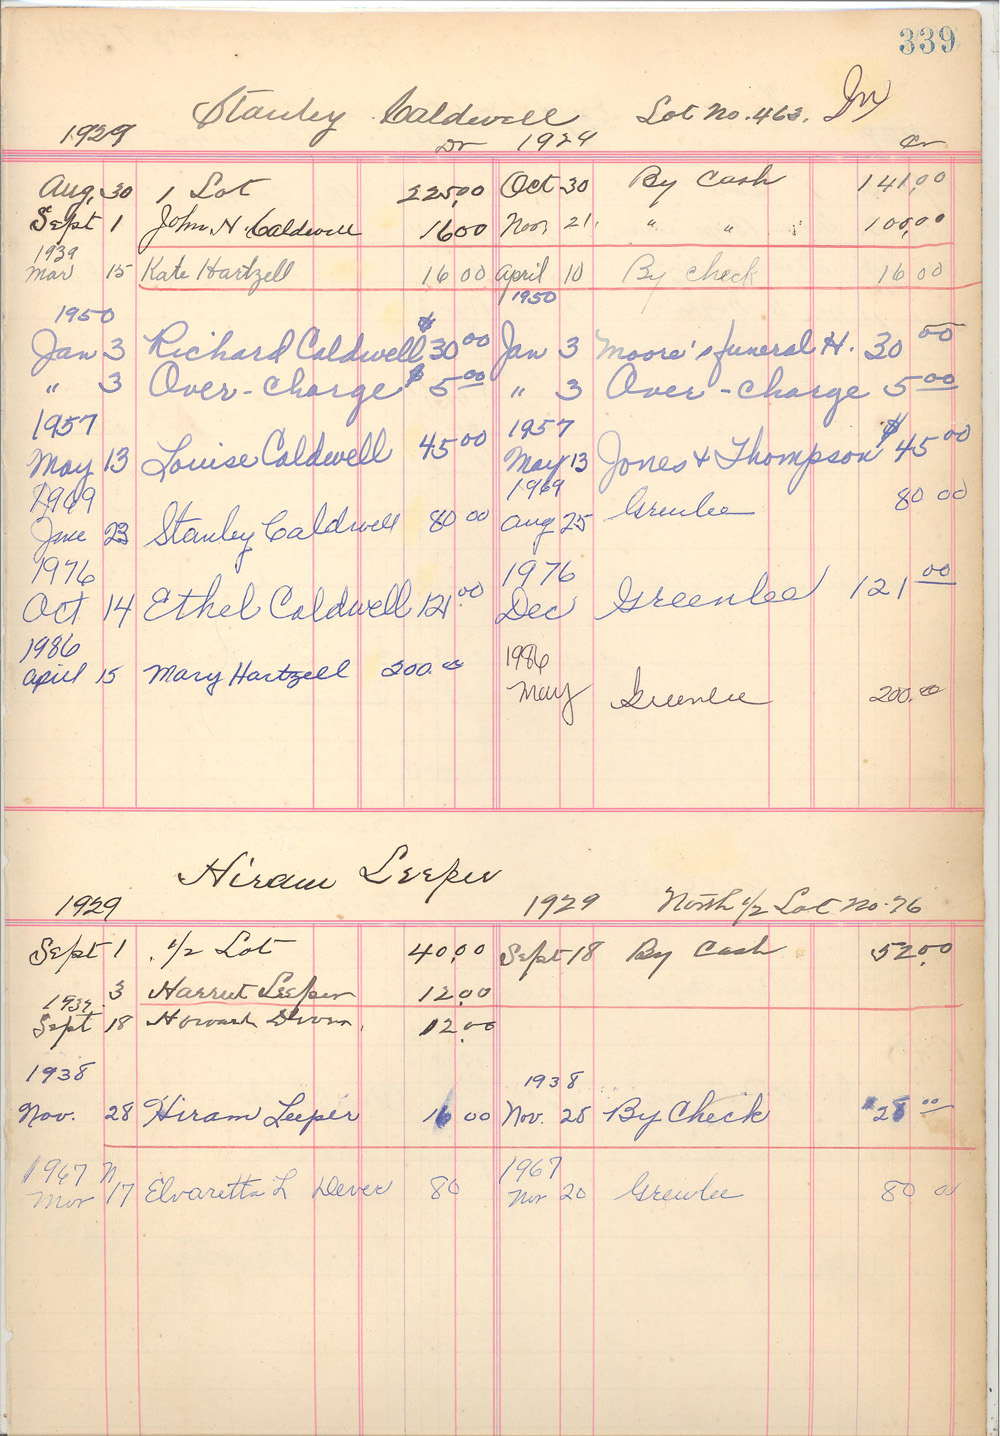 339
Stanley Caldwell Lot No. 463.
1929 Dr 1929 Cr
Aug. 30 1 Lot 225.00 Oct 30 By Cash 141.00
Sept 1 John N. Caldwell 16.00 Nov. 21. " " 100.00
1939
Mar 15 Kate Hartzell 16 00 April 10 By Check 16 00
1950 1950
Jan 3 Richard Caldwell $30 00 Jan 3 Moore's funeral H. 30 00
" 3 Over-charge $5 00 " 3 Over-charge 5 00
1957 1957
May 13 Louise Caldwell 45 00 May 13 Jones & Thompson $45 00
1969 1969
June 23 Stanley Caldwell 80 00 Aug 25 Greenlee 80 00
1976 1976
Oct 14 Ethel Caldwell 121.00 Dec Greenlee 121 00
1986 1986
April 15 Mary Hartzell 200.00 May Greenlee 200.00
Hiram Leeper
1929 1929 North 1/2 Lot No. 76
Sept 1 . 1/2 Lot 40.00 Sept 18 By Cash 52.00
3 Harriet Leeper 12.00
Sept 18 Howard 12.00
1938 1938
Nov. 28 Hiram Leeper 16 00 Nov. 28 By Check $28 00
1967 1967
Nov 17 Elvaretta L Dever 80 Nov 20 Greenlee 80 00